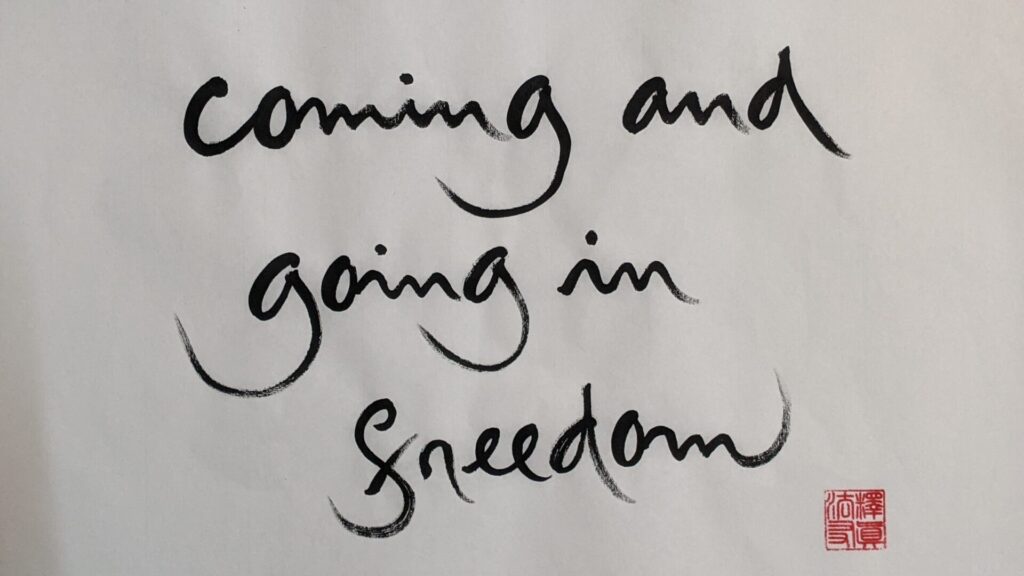 coming and
going in
freedom